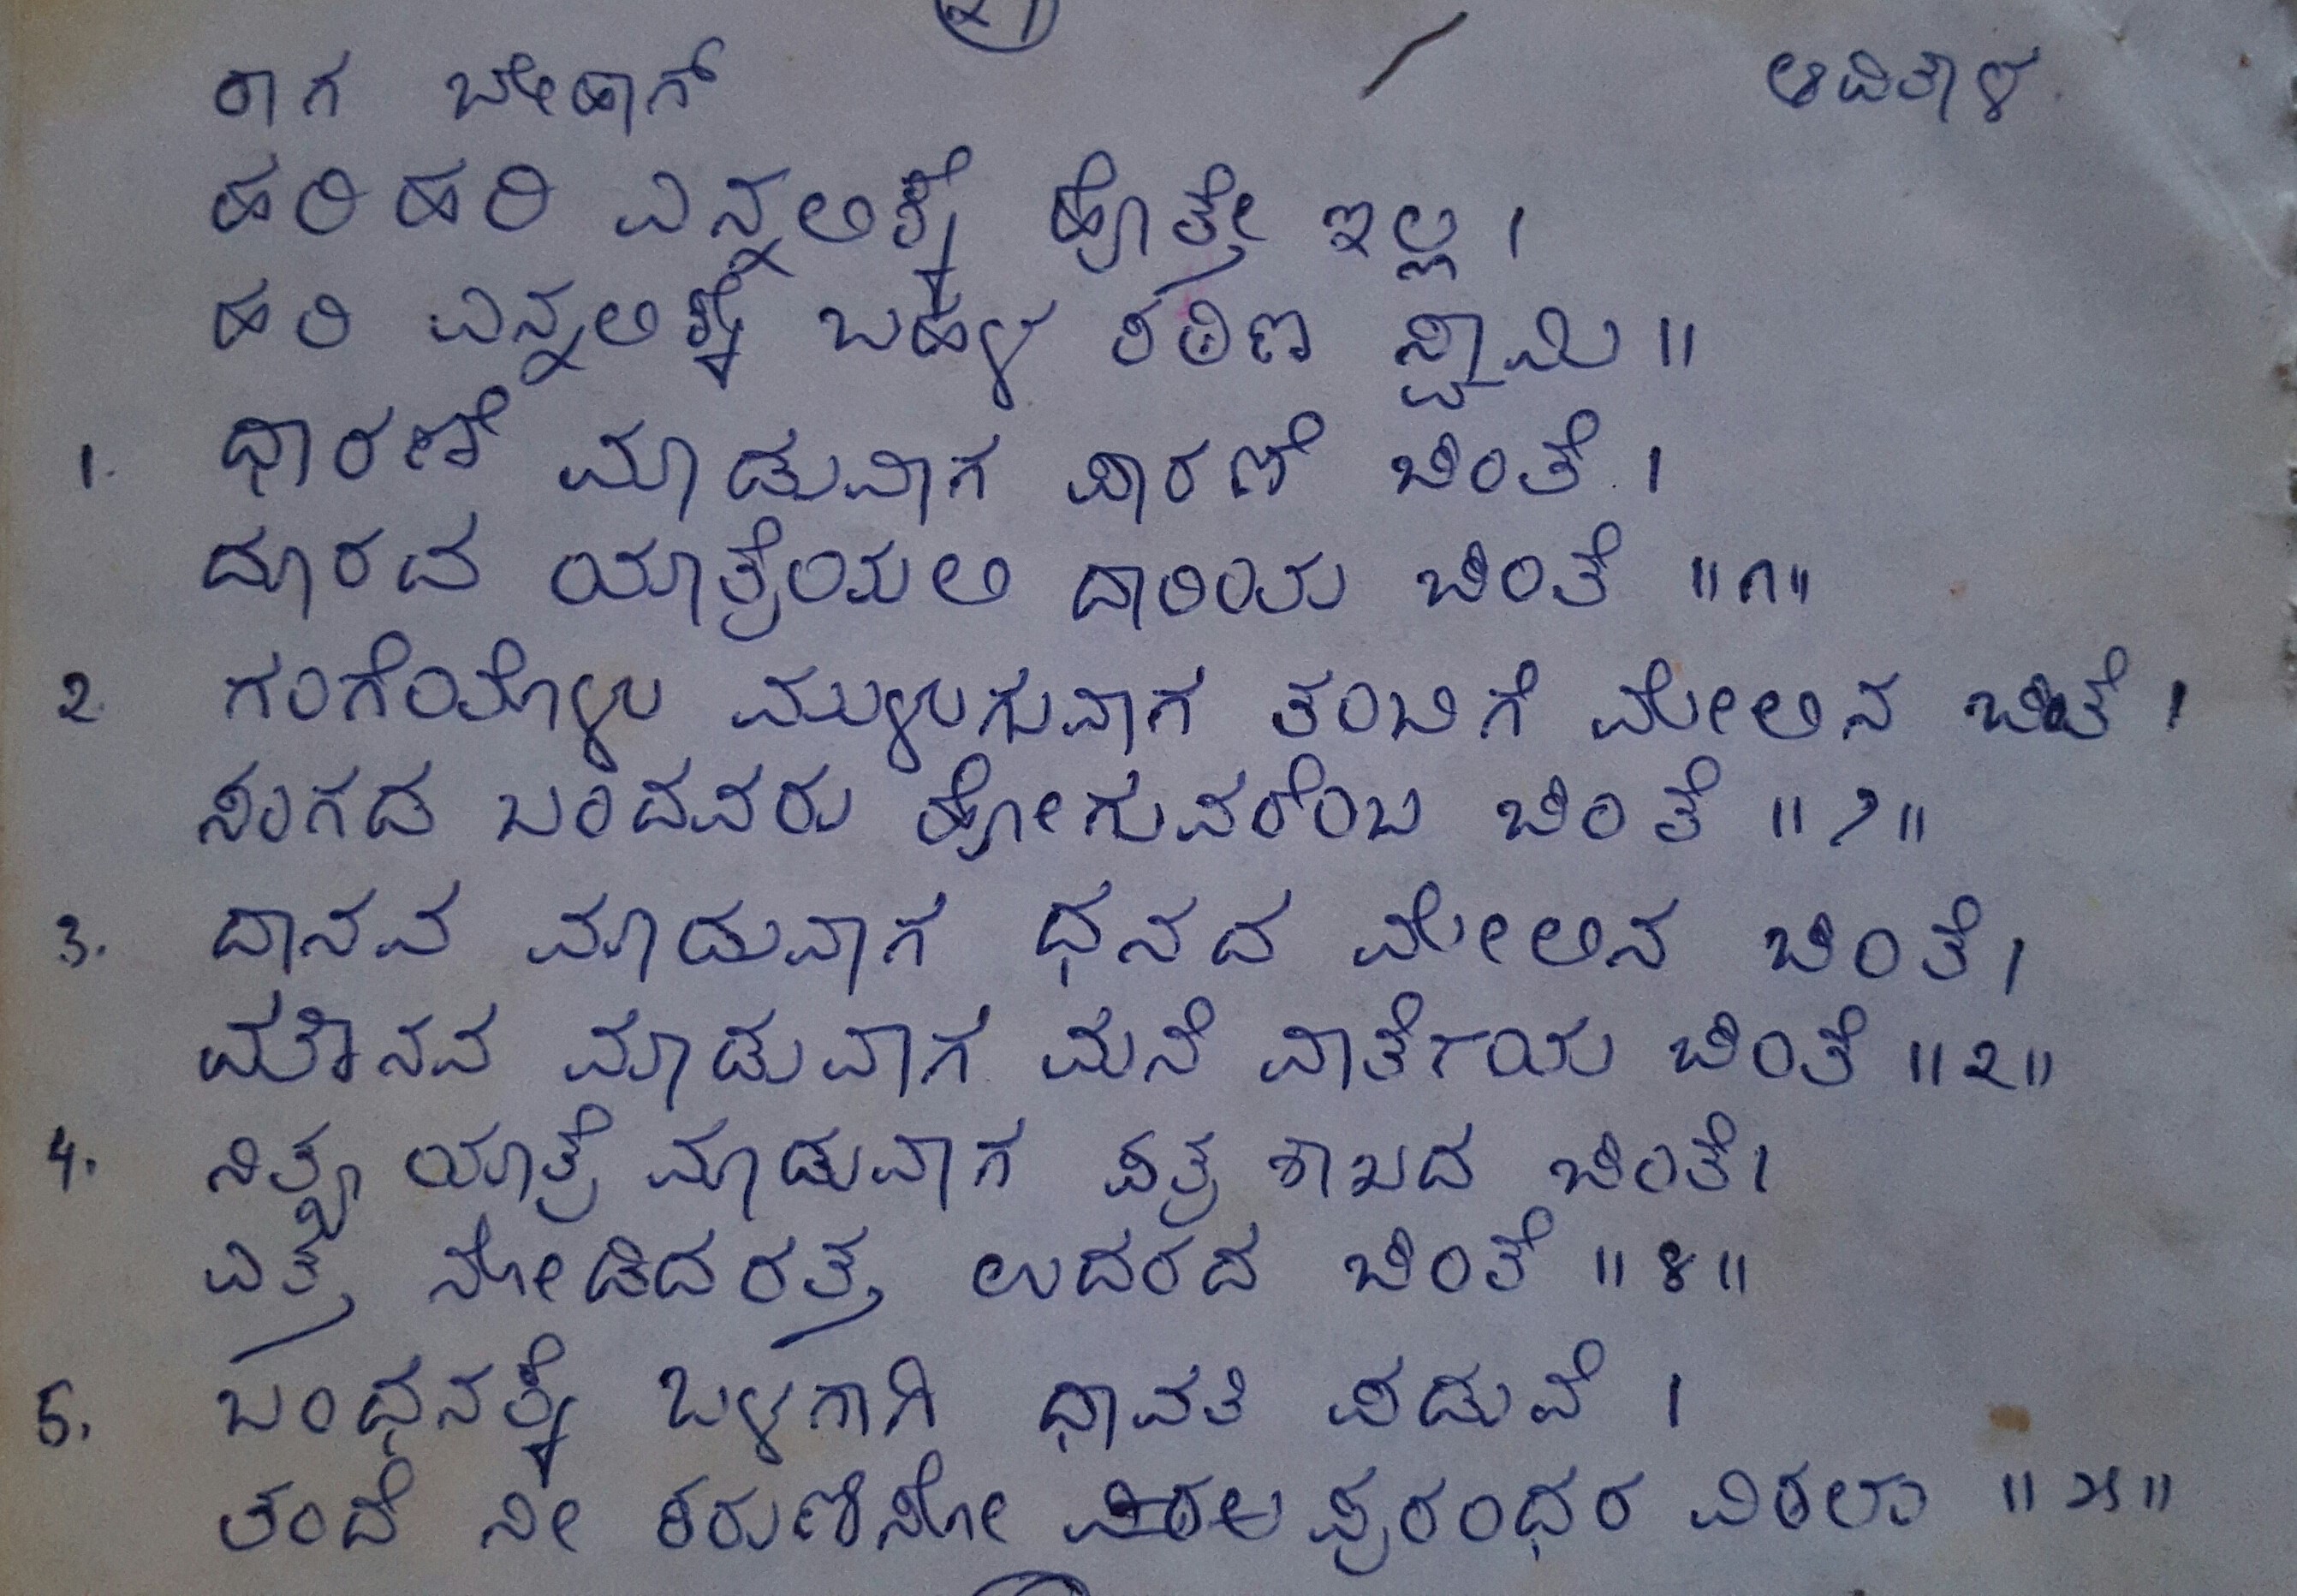 ೨೧
ರಾಗ ಬೇಹಾಗ್ ಆದಿತಾಳ
ಹರಿ ಹರಿ ಎನ್ನಲಿಕ್ಕೆ ಹೊತ್ತೇ ಇಲ್ಲ ।
ಹರಿ ಎನ್ನಲಿಕ್ಕೆ ಬಹಳ ಕಠಿಣ ಸ್ವಾಮಿ ॥
1. ಧಾರಣೆ ಮಾಡುವಾಗ ಪಾರಣೆ ಚಿಂತೆ ।
ದೂರದ ಯಾತ್ರೆಯಲಿ ದಾರಿಯ ಚಿಂತೆ ॥೧॥
2. ಗಂಗೆಯೊಳು ಮುಳುಗುವಾಗ ತಂಬಿಗೆ ಮೇಲಿನ ಚಿಂತೆ ।
ಸಂಗಡ ಬಂದವರು ಹೋಗುವರೆಂಬ ಚಿಂತೆ ॥೨॥
3. ದಾನವ ಮಾಡುವಾಗ ಧನದ ಮೇಲಿನ ಚಿಂತೆ ।
ಮೌನವ ಮಾಡುವಾಗ ಮನೆ ವಾರ್ತೆಯ ಚಿಂತೆ ॥೩॥
4. ನಿತ್ಯ ಯಾತ್ರೆ ಮಾಡುವಾಗ ಪತ್ರ ಶಾಖದ ಚಿಂತೆ ।
ಎತ್ತ ನೋಡಿದರತ್ತ ಉದರದ ಚಿಂತೆ ॥೪॥
5. ಬಂಧನಕ್ಕೆ ಒಳಗಾಗಿ ಧಾವತಿ ಪಡುವೆ ।
ತಂದೆ ನೀ ಕರುಣಿಸೋ ಪುರಂಧರ ವಿಠಲಾ ॥೫॥